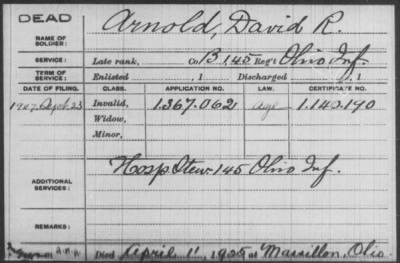 DEAD
NAME OF SOLDIER: Arnold, David R.
SERVICE: Late rank, Co B, 145 Reg't Ohio Inf.
TERM OF SERVICE: Enlisted , 1 Discharged , 1
DATE OF FILING. CLASS. APPLICATION NO. LAW. CERTIFICATE NO.
1907. Sept. 23 Invalid, 1.367.062 age 1.140.190
Widow,
Minor,
ADDITIONAL SERVICES: Hosp. Stew. 145 Ohio Inf.
REMARKS:
Died April 11, 1925 at Massillon, Ohio.